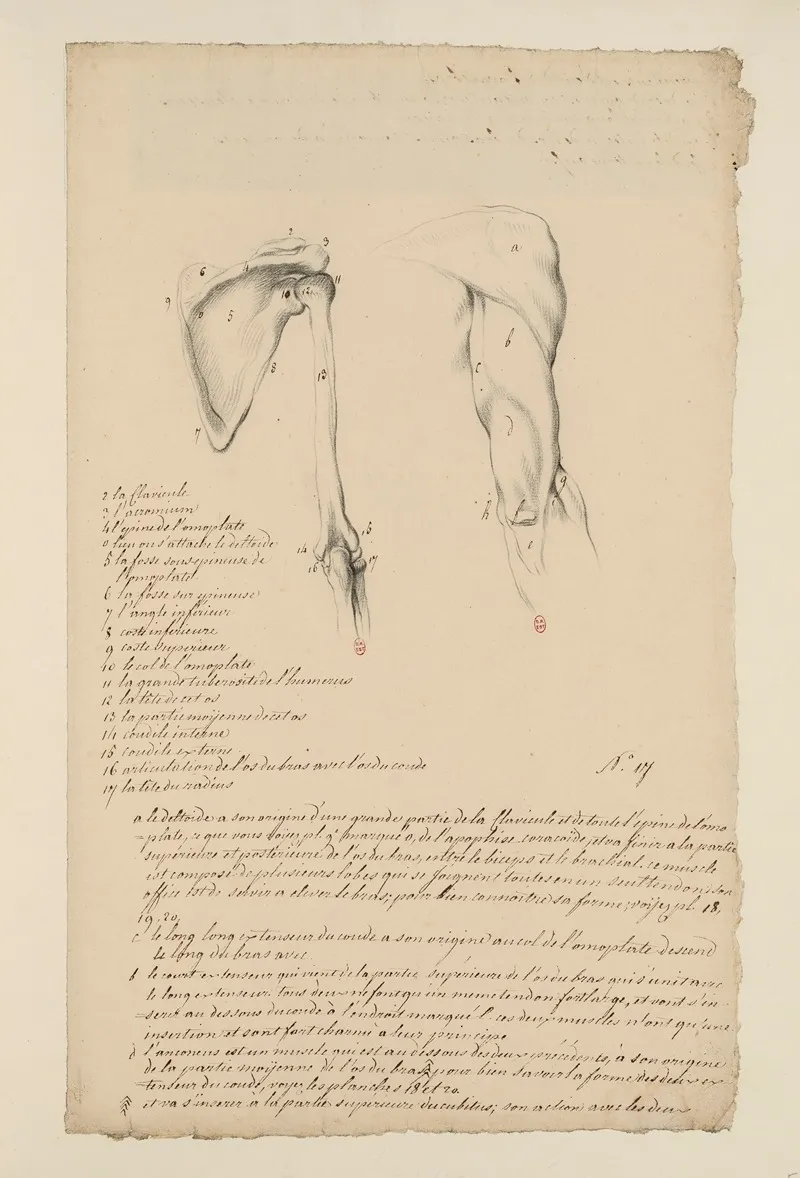 2 la flavicule
3 l'acromium
4 l'epine de l'omoplate
o lieu ou s'attache le deltoide
5 la fosse sous epineuse de
l'omoplate
6 la fosse sur epineuse
7 l'angle inferieur
8 coste inferieure
9 coste superieur
10 le col de l'omoplate
11 la grande tuberosité de l'humerus
12 la tête de cet os
13 la partie moÿenne de cet os
14 condile interne
15 condile externe
16 articulation de l'os du bras avec l'os du coude
17 la tête du radius
N.° 17
a le deltoide a son origine d'une grande partie de la flavicule et de toute l'épine de l'omo
=plate, ce que vous voiiez pl. marqué o, de l'apophise coracoïde, et va finir a la partie
supérieure et postérieure de l'os du bras, entre le biceps et le brachial. ce muscle
est composé de plusieurs lobes qui se joignent toutes en un seul tendon; son
office est de servir a elever le bras; pour bien connoitre sa forme, voijez pl. 18,
19, 20,
c le long long extenseur du coude a son origine au col de l'omoplate descend
le long du bras avec
b le court extenseur qui vient de la partie supérieure de l'os du bras qui s'unit avec
le long extenseur. tous deux ne font qu'un meme tendon fort large, et vont s'in-
=serer au dessous du coude à l'endroit marqué ces deux muscles n'ont qu'une
insertion et sont fort charnu a leur principe
d l'anconeus est un muscle qui est au dessous des deux précédents, à son origine
de la partie moÿenne de l'os du bras pour bien savoir la forme des deux ex
=tenseur du coude, voyez les planches 18 et 20.
et va s'inserer à la partie supérieure du cubitus; son action avec les deux
2
3
6
4
9
11
10
12
o
5
8
13
7
14
15
16
17
a
b
c
d
g
h
e